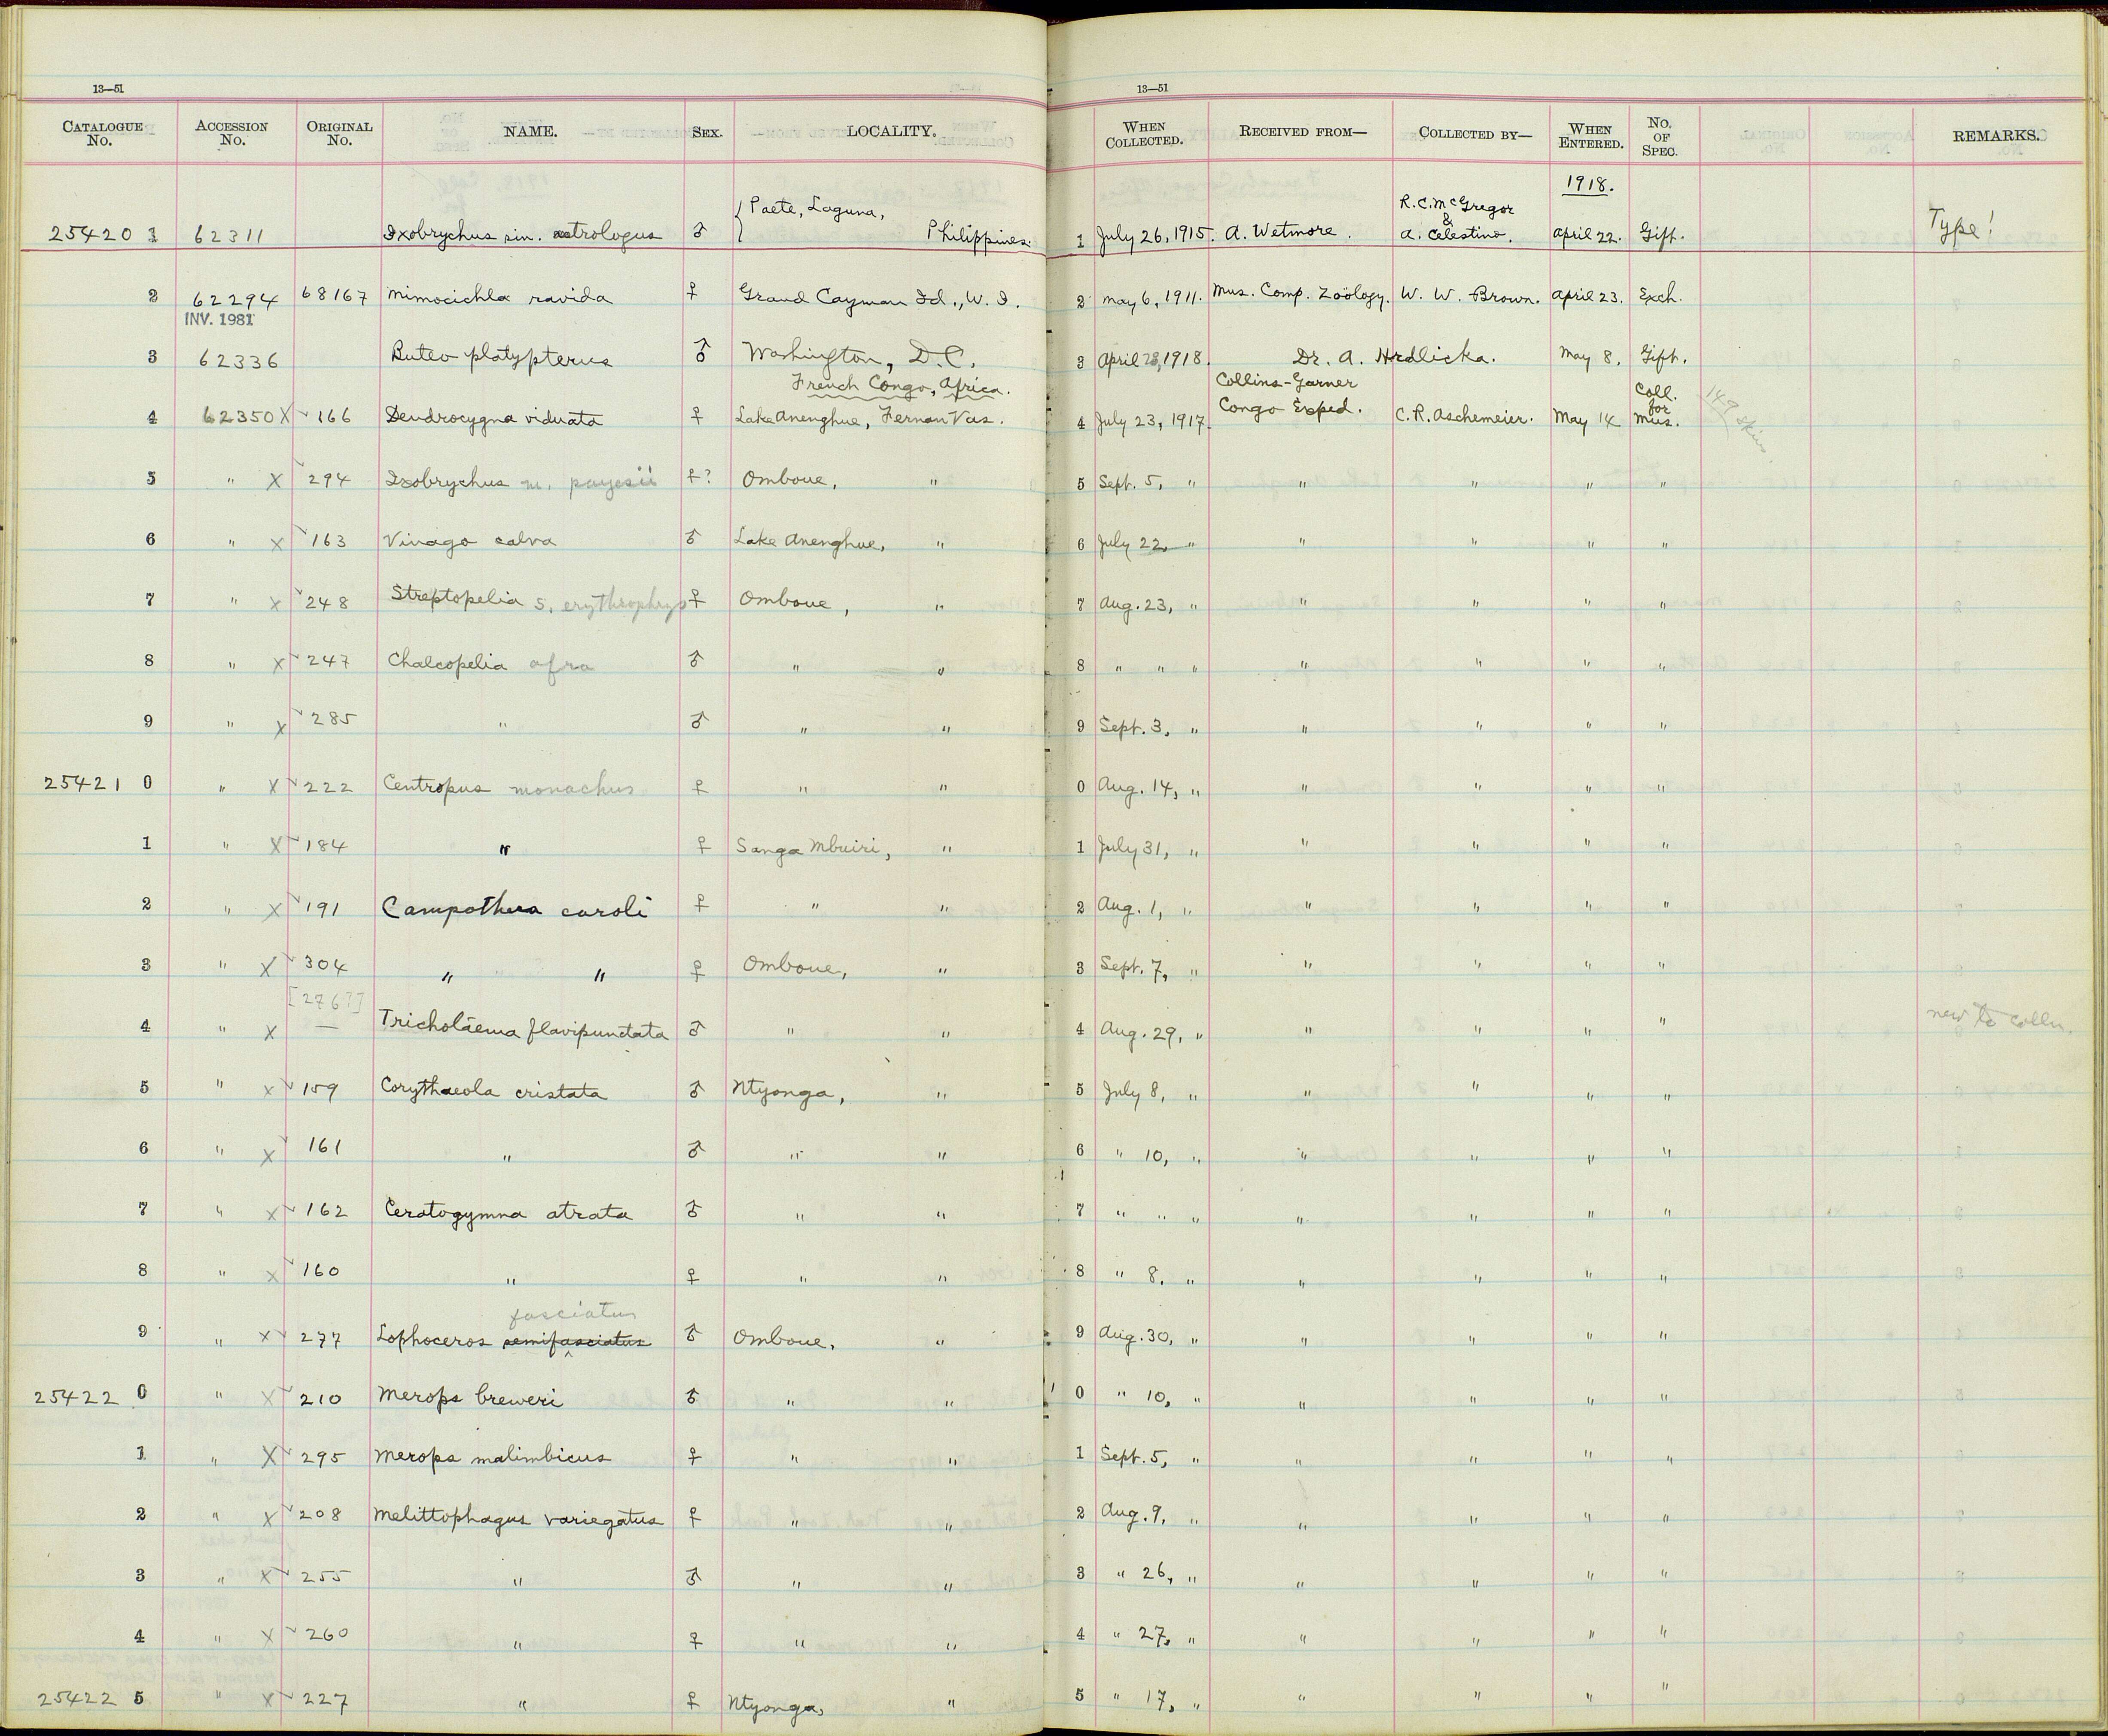 13—51 13—51
CATALOGUE No. ACCESSION No. ORIGINAL No. NAME. SEX. LOCALITY. WHEN COLLECTED. RECEIVED FROM— COLLECTED BY— WHEN ENTERED. No. OF SPEC. REMARKS.
1918.
Paete, Laguna, R. C. McGregor
25420 1 62311 Ixobrychus sin. astrologus ♂ Philippines. 1 July 26, 1915. A. Wetmore. & A. Celestino. April 22. Gift. Type!
2 62294 68167 Mimocichla ravida ♀ Grand Cayman Id., W. I. 2 May 6, 1911. Mus. Comp. Zoölogy. W. W. Brown. April 23. Exch.
INV. 1981
3 62336 Buteo platypterus ♂ Washington, D.C. 3 April 28, 1918. Dr. A. Hrdlicka. May 8. Gift.
French Congo, Africa. Collins-Garner Coll. for
4 62350 X ✓ 166 Dendrocygna viduata ♀ Lake Anenghue, Fernan Vas. 4 July 23, 1917. Congo Exped. C. R. Aschemeier. May 14 Mus. 149 skins
5 " X ✓ 294 Ixobrychus m. payesii ♀? Omboue, " 5 Sept. 5, " " " " "
6 " X ✓ 163 Vinago calva ♂ Lake Anenghue, " 6 July 22, " " " " "
7 " X ✓ 248 Streptopelia s. erythrophrys ♀ Omboue, " 7 Aug. 23, " " " " "
8 " X ✓ 247 Chalcopelia afra ♂ " " 8 " " " " " " "
9 " X ✓ 285 " ♂ " " 9 Sept. 3, " " " " "
25421 0 " X ✓ 222 Centropus monachus ♀ " " 0 Aug. 14, " " " " "
1 " X ✓ 184 " ♀ Sanga Mbuiri, " 1 July 31, " " " " "
2 " X ✓ 191 Campothera caroli ♀ " " 2 Aug. 1, " " " " "
3 " X ✓ 304 " " ♀ Omboue, " 3 Sept. 7, " " " " "
[276?]
4 " X — Tricholaema flavipunctata ♂ " " 4 Aug. 29, " " " " " new to colln.
5 " X ✓ 159 Corythaeola cristata ♂ Ntyonga, " 5 July 8, " " " " "
6 " X ✓ 161 " ♂ " " 6 " 10, " " " " "
7 " X ✓ 162 Ceratogymna atrata ♂ " " 7 " " " " " " "
8 " X ✓ 160 " ♀ " " 8 " 8, " " " " "
fasciatus
9 " X ✓ 277 Lophoceros semifasciatus ♂ Omboue, " 9 Aug. 30, " " " " "
25422 0 " X ✓ 210 Merops breweri ♂ " " 0 " 10, " " " " "
1 " X ✓ 295 Merops malimbicus ♀ " " 1 Sept. 5, " " " " "
2 " X ✓ 208 Melittophagus variegatus ♀ " " 2 Aug. 9, " " " " "
3 " X ✓ 255 " ♂ " " 3 " 26, " " " " "
4 " X ✓ 260 " ♀ " " 4 " 27, " " " " "
25422 5 " X ✓ 227 " ♀ Ntyonga, " 5 " 17, " " " " "